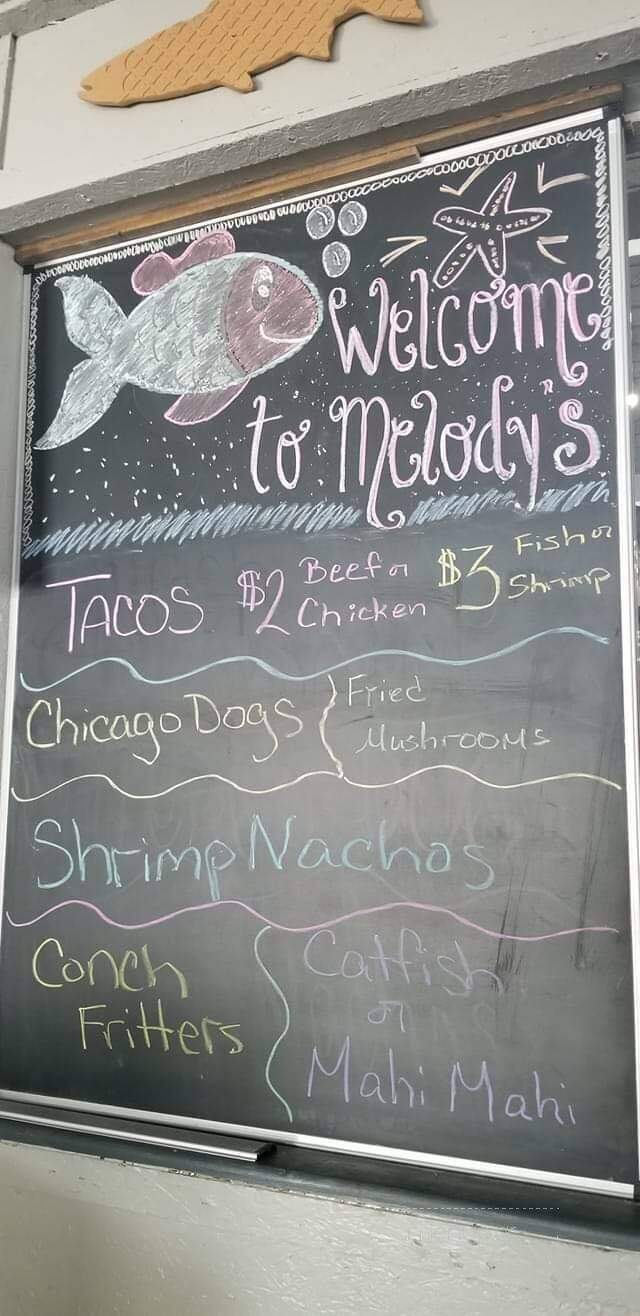 Welcome
to Melody's
TACOS $2 Beef or Chicken $3 Fish or Shrimp
Chicago Dogs Fried Mushrooms
Shrimp Nachos
Conch Fritters
Catfish
or
Mahi Mahi